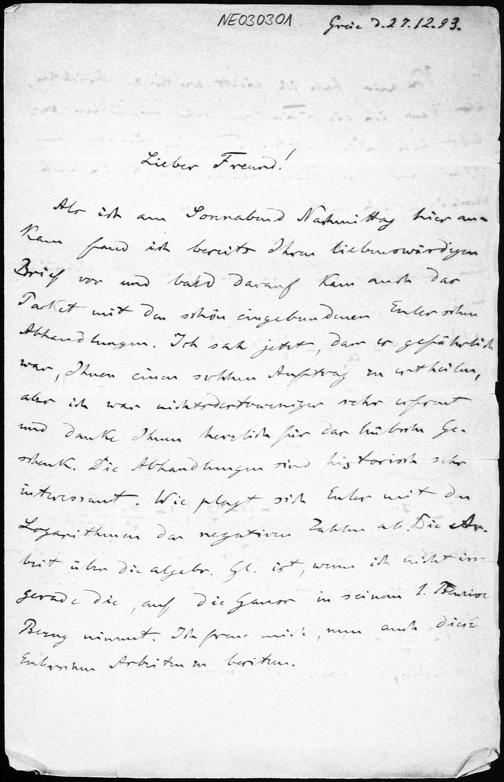 NE030301
Greiz d. 27.12.93.
Lieber Freund!
Als ich am Sonnabend Nachmittag hier an-
kam fand ich bereits Ihren liebenswürdigen
Brief vor und bald darauf kam auch das
Packet mit den schön eingebundenen Eulerschen
Abhandlungen. Ich sah jetzt, dass es gefährlich
war, Ihnen einen solchen Auftrag zu ertheilen,
aber ich war nichtsdestoweniger sehr erfreut
und danke Ihnen herzlich für das hübsche Ge-
schenk. Die Abhandlungen sind historisch sehr
interessant. Wie plagt sich Euler mit den
Logarithmen der negativen Zahlen ab. Die Ar-
beit über die algebr. Gl. ist, wenn ich nicht irre
gerade die, auf die Gauss in seinem 1. Beweise
Bezug nimmt. Ich freue mich, nun auch diese
Eulerschen Arbeiten zu besitzen.